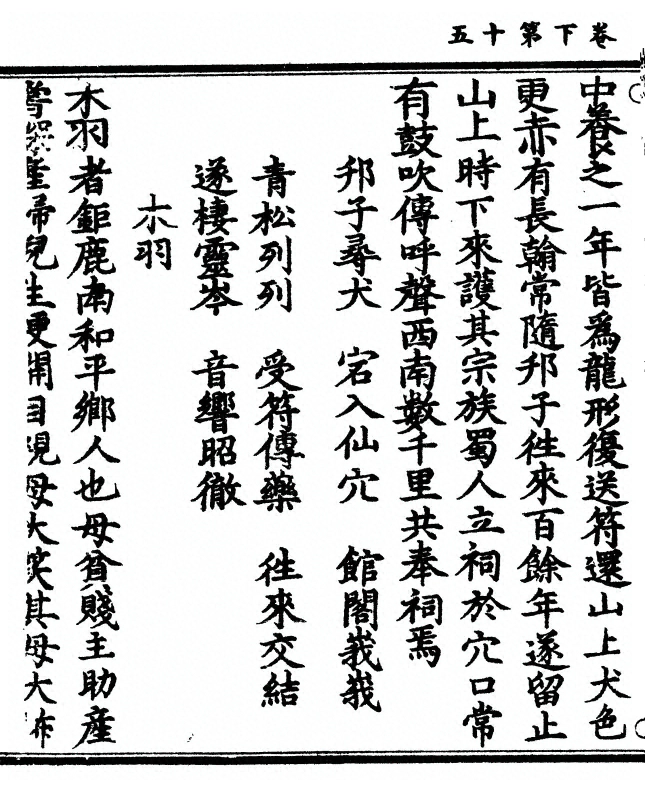 卷下第十五
中養之一年皆爲龍形復送符還山上犬色
更赤有長翰常隨邦子徃來百餘年遂留止
山上時下來護其宗族蜀人立祠於穴口常
有鼓吹傳呼聲西南數千里共奉祠焉
邦子尋犬 宕入仙穴 館閣峩峩
青松列列 受符傳藥 徃來交結
遂棲靈岑 音響昭徹
木羽
木羽者鉅鹿南和平鄉人也母貧賤主助產
嘗探產婦兒生便開目視母大笑其母大怖